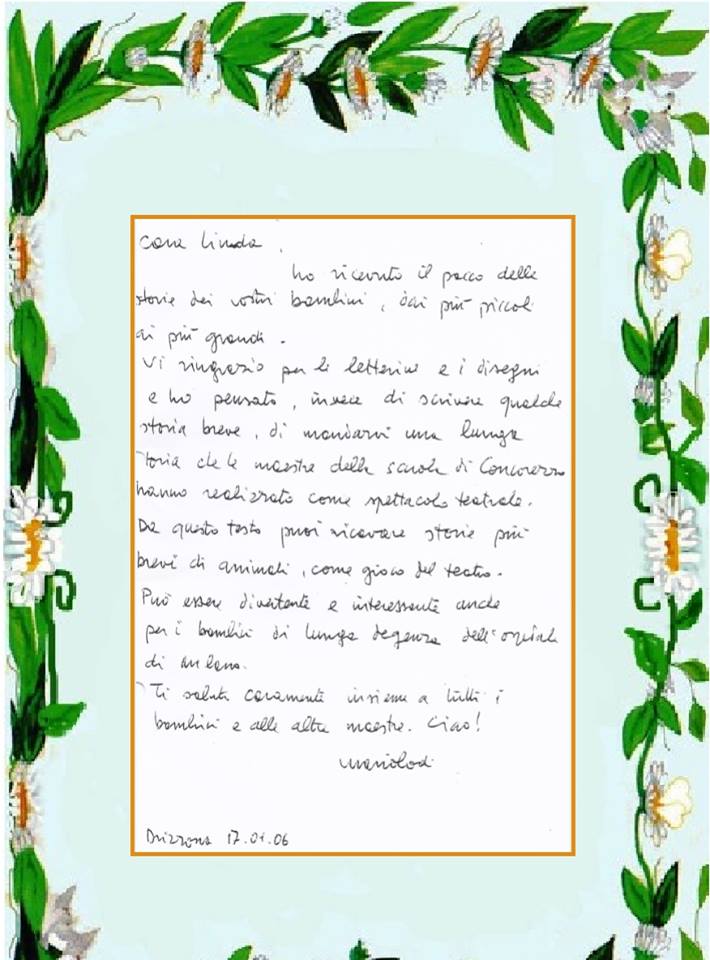 Cara Linda,
ho ricevuto il pacco delle
storie dei vostri bambini, dai più piccoli
ai più grandi.
Vi ringrazio per le letterine e i disegni
e ho pensato, invece di scrivere qualche
storia breve, di mandarvi una lunga
storia che le maestre della scuola di Concorezzo
hanno realizzato come spettacolo teatrale.
Da questo testo puoi ricavare storie più
brevi di animali, come gioco del teatro.
Può essere divertente e interessante anche
per i bambini di lunga degenza dell'ospedale
di Milano.
Ti saluto caramente insieme a tutti i
bambini e alle altre maestre. Ciao!
Mario Lodi
Drizzona 17.01.06